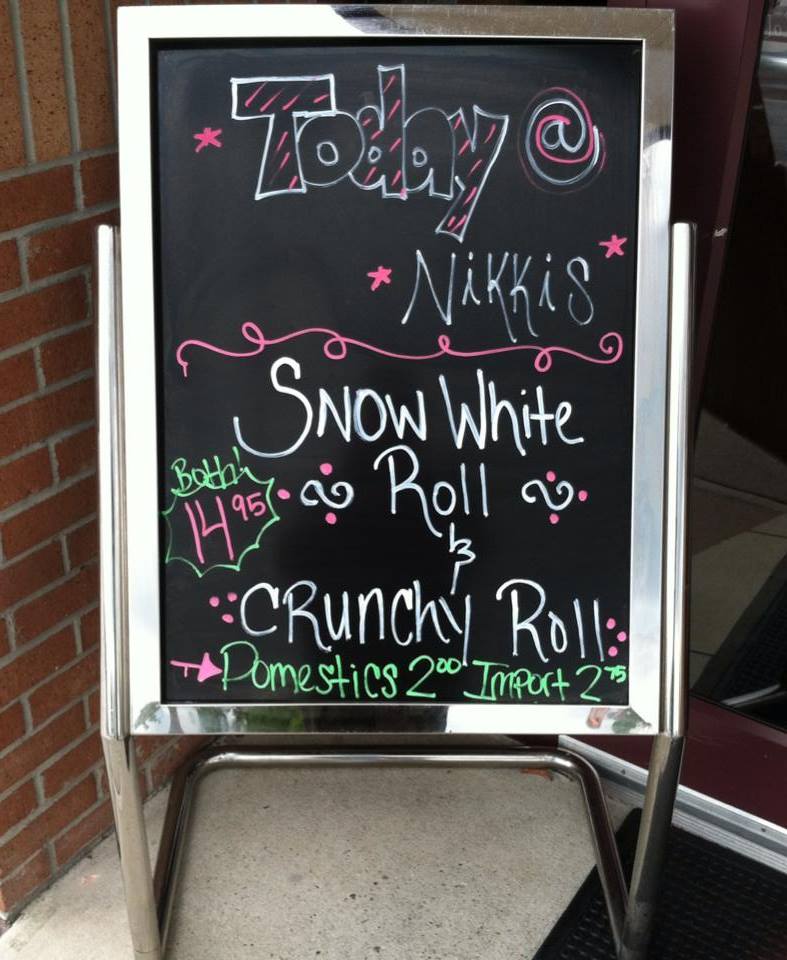 Today @
Nikkis
Snow White
Roll
Both!
14.95
&
Crunchy Roll
Domestics 2.00 Import 2.75